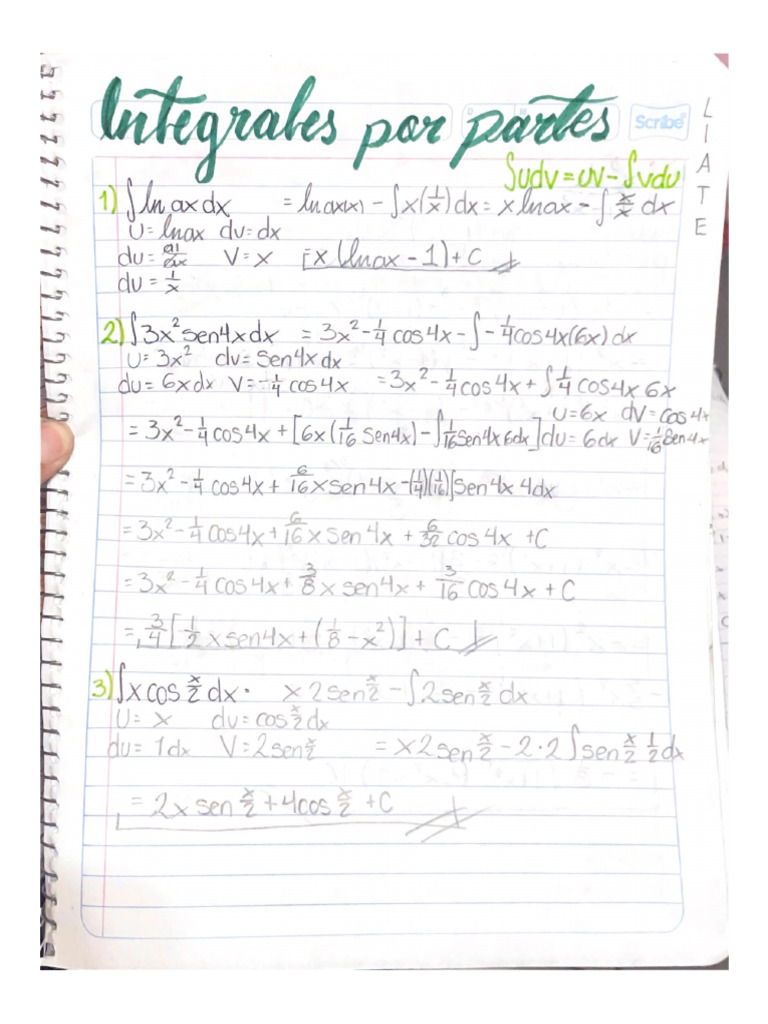 Integrales por partes
Scribe
L
I
A
T
E
∫udv=uv-∫vdu
1) ∫ln ax dx = lnax(x) - ∫x(1/x)dx = x lnax - ∫x/x dx
U=lnax dv=dx
du=a/ax V=x =x(lnax-1)+C
du=1/x
2) ∫3x²sen4xdx = 3x²-1/4 cos4x-∫-1/4cos4x(6x)dx
U=3x² dv=Sen4xdx
du=6xdx V=-1/4 cos4x =3x²-1/4cos4x+∫1/4 cos4x 6x
U=6x dV=cos4x
=3x²-1/4cos4x+[6x(1/16 Sen4x)-∫1/16Sen4x6dx] du=6dx V=1/16Sen4x
=3x²-1/4 cos4x+6/16xsen4x-(1/4)(1/16)∫Sen4x4dx
=3x²-1/4cos4x+6/16xsen4x+6/32cos4x+C
=3x²-1/4cos4x+3/8xsen4x+3/16cos4x+C
=3/4[1/2xsen4x+(1/8-x²)]+C
3) ∫xcos x/2 dx. x2sen x/2-∫2sen x/2 dx
U=x dv=cos x/2 dx
du=1dx V=2sen x/2 =x2sen x/2-2·2∫sen x/2 1/2dx
=2xsen x/2+4cos x/2+C